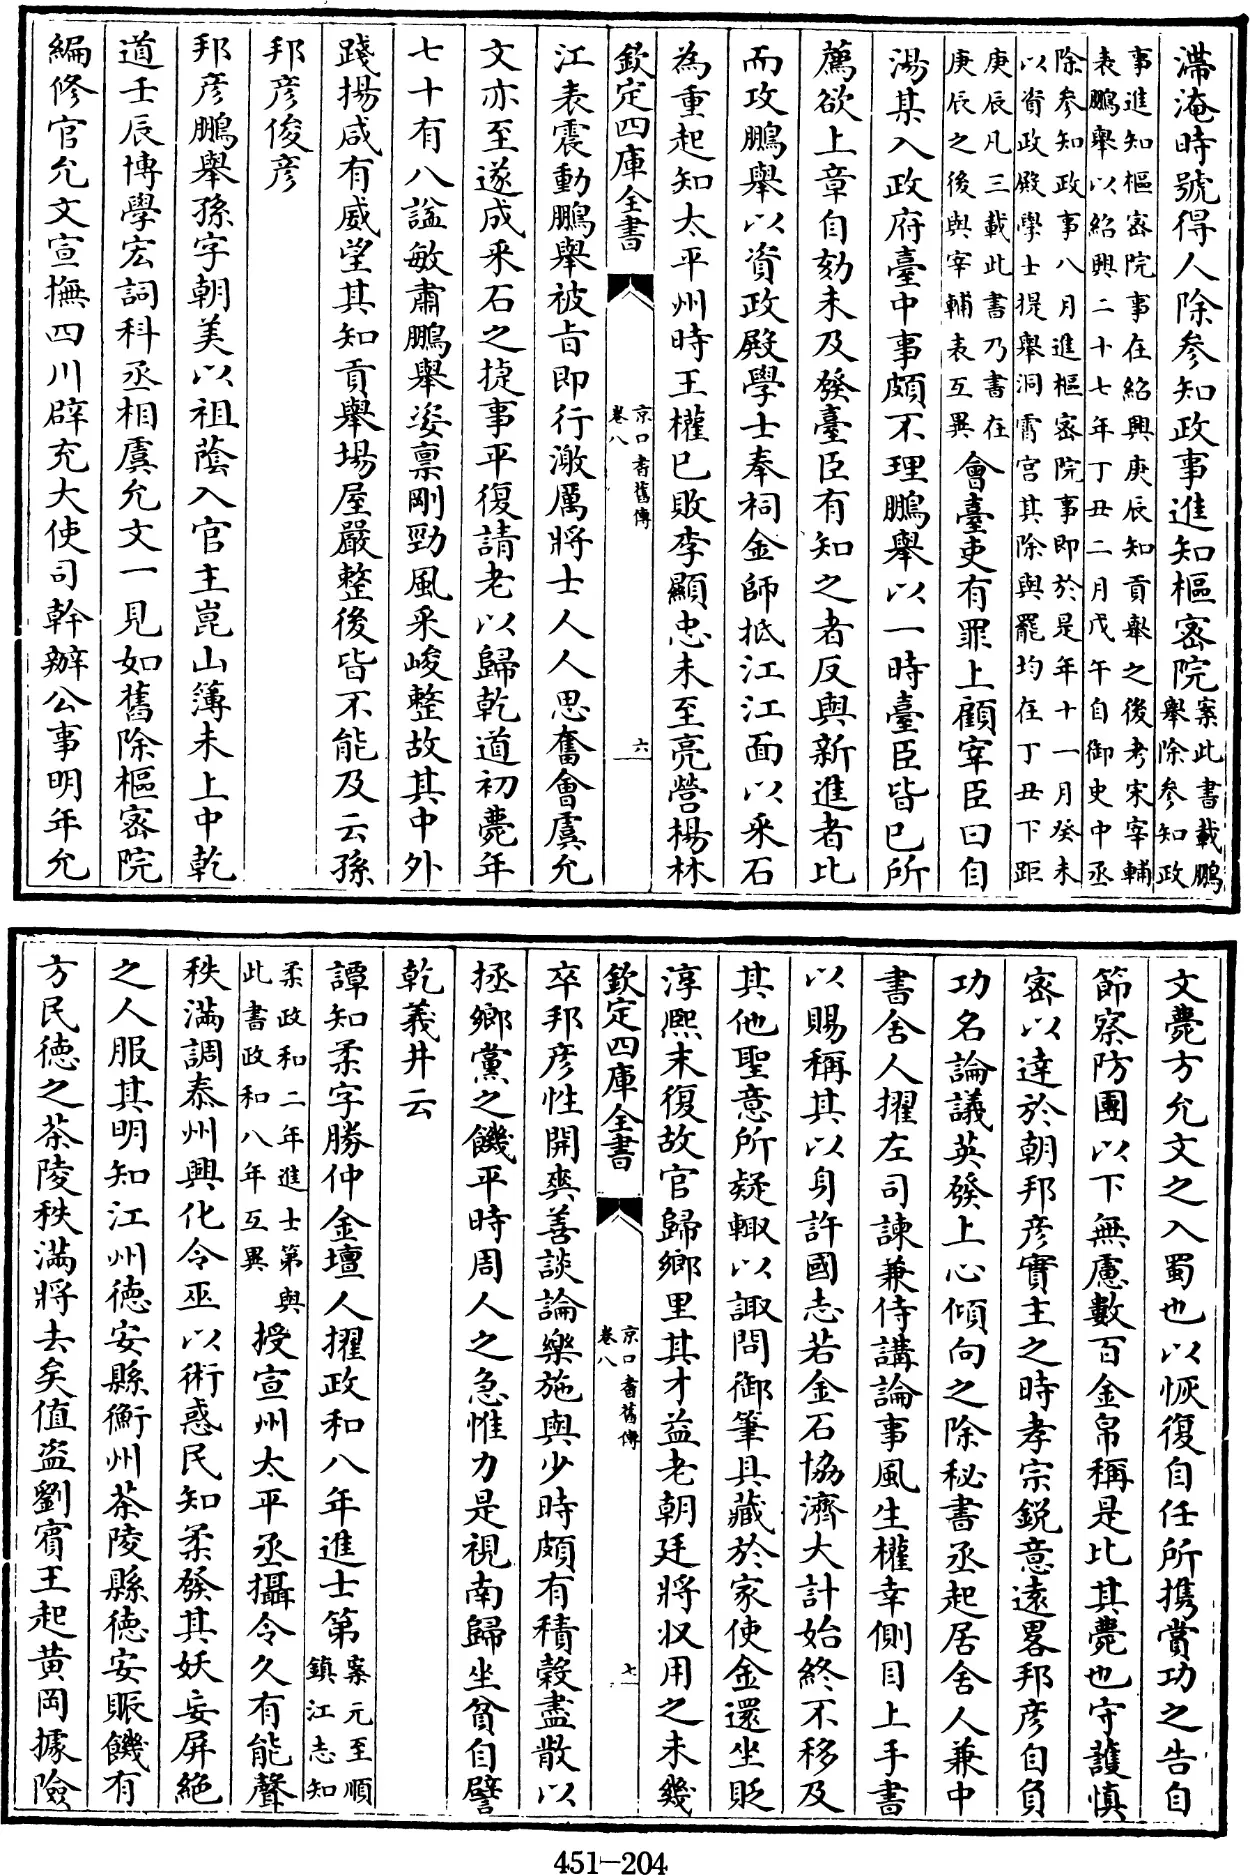 滯淹時號得人除參知政事進知樞密院案此書載鵬
舉除參知政
事進知樞密院事在紹興庚辰知貢舉之後考宋宰輔
表鵬舉以紹興二十七年丁丑二月戊午自御史中丞
除參知政事八月進樞密院事即於是年十一月癸未
以資政殿學士提舉洞霄宮其除與罷均在丁丑下距
庚辰凡三載此書乃書在
庚辰之後與宰輔表互異
會臺吏有罪上顧宰臣曰自
湯某入政府臺中事頗不理鵬舉以一時臺臣皆已所
薦欲上章自劾未及發臺臣有知之者反與新進者比
而攻鵬舉以資政殿學士奉祠金師抵江江面以采石
為重起知太平州時王權已敗李顯忠未至亮營楊林
欽定四庫全書
京口耆舊傳
卷八
六
江表震動鵬舉被旨即行激厲將士人人思奮會虞允
文亦至遂成采石之捷事平復請老以歸乾道初薨年
七十有八諡敏肅鵬舉姿稟剛勁風采峻整故其中外
踐揚咸有威望其知貢舉場屋嚴整後皆不能及云孫
邦彥俊彥
邦彥鵬舉孫字朝美以祖蔭入官主崑山簿未上中乾
道壬辰博學宏詞科丞相虞允文一見如舊除樞密院
編修官允文宣撫四川辟充大使司幹辦公事明年允
文薨方允文之入蜀也以恢復自任所攜賞功之告自
節察防團以下無慮數百金帛稱是比其薨也守護慎
密以達於朝邦彥實主之時孝宗銳意遠畧邦彥自負
功名論議英發上心傾向之除秘書丞起居舍人兼中
書舍人擢左司諫兼侍講論事風生權幸側目上手書
以賜稱其以身許國志若金石協濟大計始終不移及
其他聖意所疑輙以諏問御筆具藏於家使金還坐貶
淳熙末復故官歸鄉里其才益老朝廷將收用之未幾
欽定四庫全書
京口耆舊傳
卷八
七
卒邦彥性開爽善談論樂施與少時頗有積榖盡散以
拯鄉黨之饑平時周人之急惟力是視南歸坐貧自譬
乾義井云
譚知柔字勝仲金壇人擢政和八年進士第案元至順
鎮江志知
柔政和二年進士第與
此書政和八年互異
授宣州太平丞攝令久有能聲
秩滿調泰州興化令巫以術惑民知柔發其妖妄屏絶
之人服其明知江州德安縣衡州茶陵縣德安賑饑有
方民德之茶陵秩滿將去矣值盜劉賓王起黃岡據險
451-204